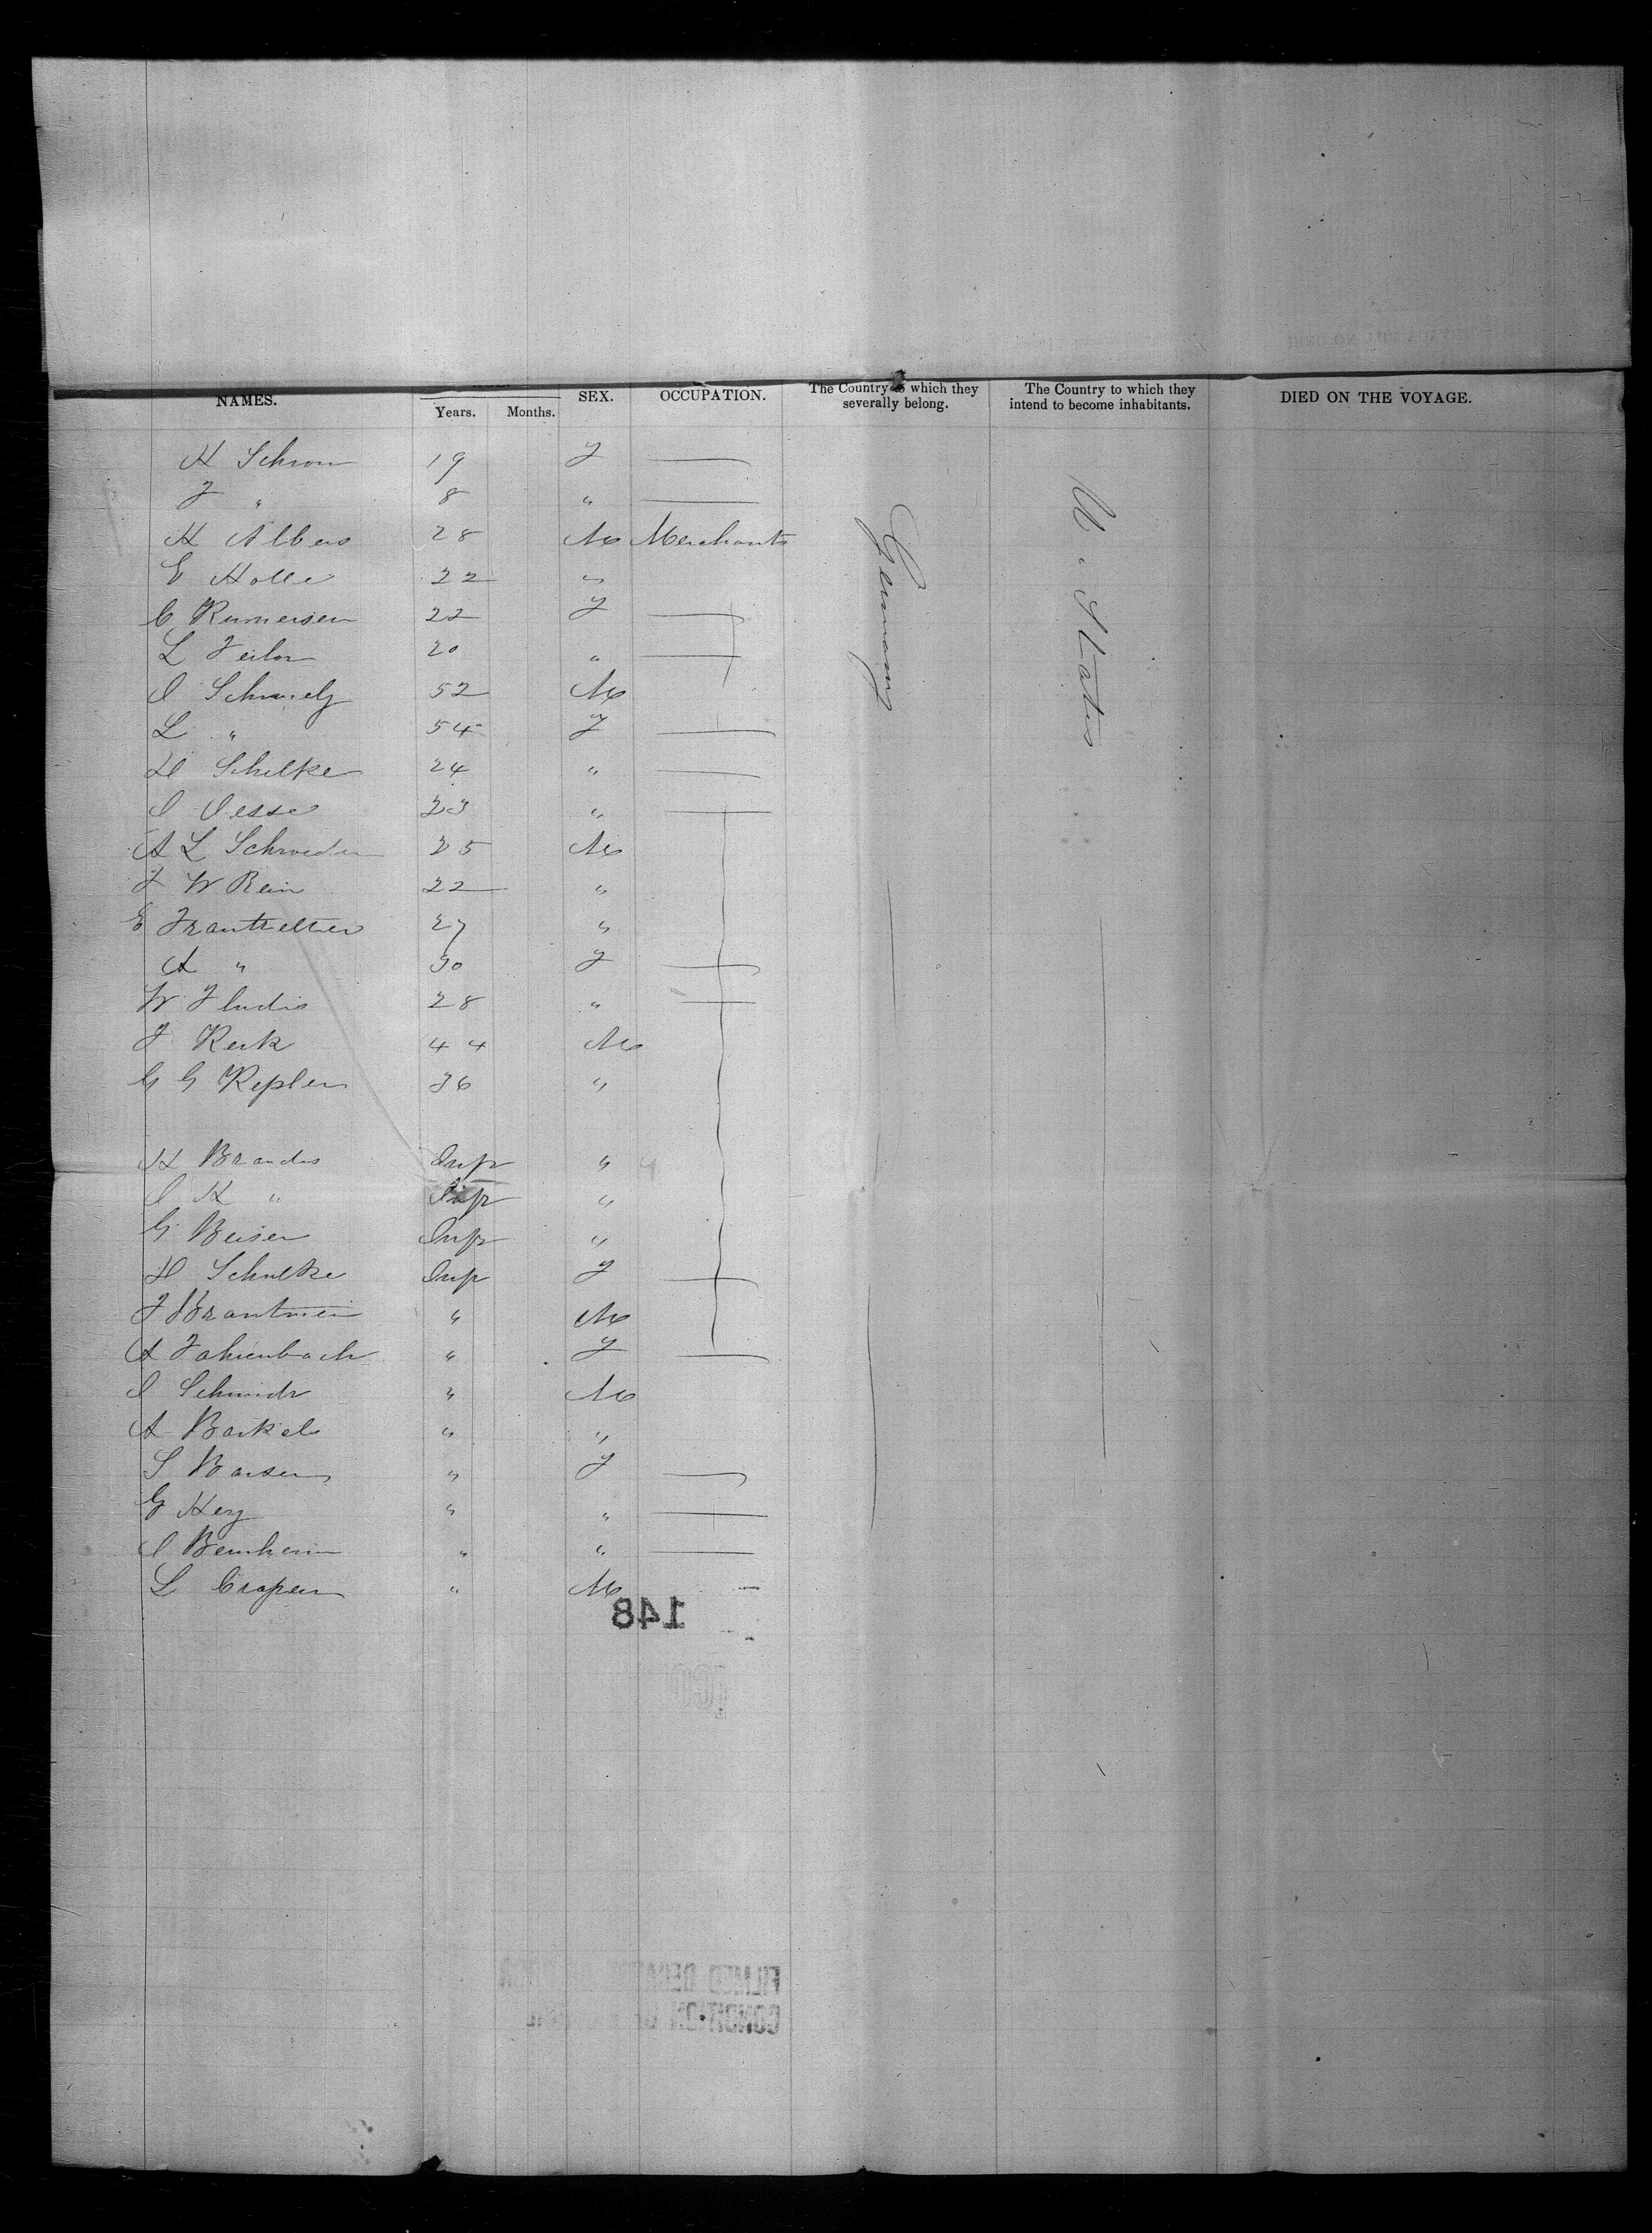 NAMES. Years. Months. SEX. OCCUPATION. The Country to which they severally belong. The Country to which they intend to become inhabitants. DIED ON THE VOYAGE.
H Schron 19 F
F " 8 "
H Albers 28 M Merchants Germany U. States
E Holle 22 "
C Rumeisen 22 F
L Feilor 20 "
I Schmelz 52 M
L " 54 F
H Schelke 24 "
I Oesse 23 "
A L Schroeder 25 M
F W Rein 22 "
E 27 "
A " 30 F
W Fludis 28 "
F Kerk 44 M
G G Kepler 36 "
H Brandes Inf "
I H " Inf "
G Beisen Inf "
H Schulke Inf F
F Brantmein " M
A Fahrenbach " F
I Schmidt " M
A Barkels " "
S Bansen " F
G Hey " "
I Bernheim " "
L Crapen " M
148
FILMED
CONDITION